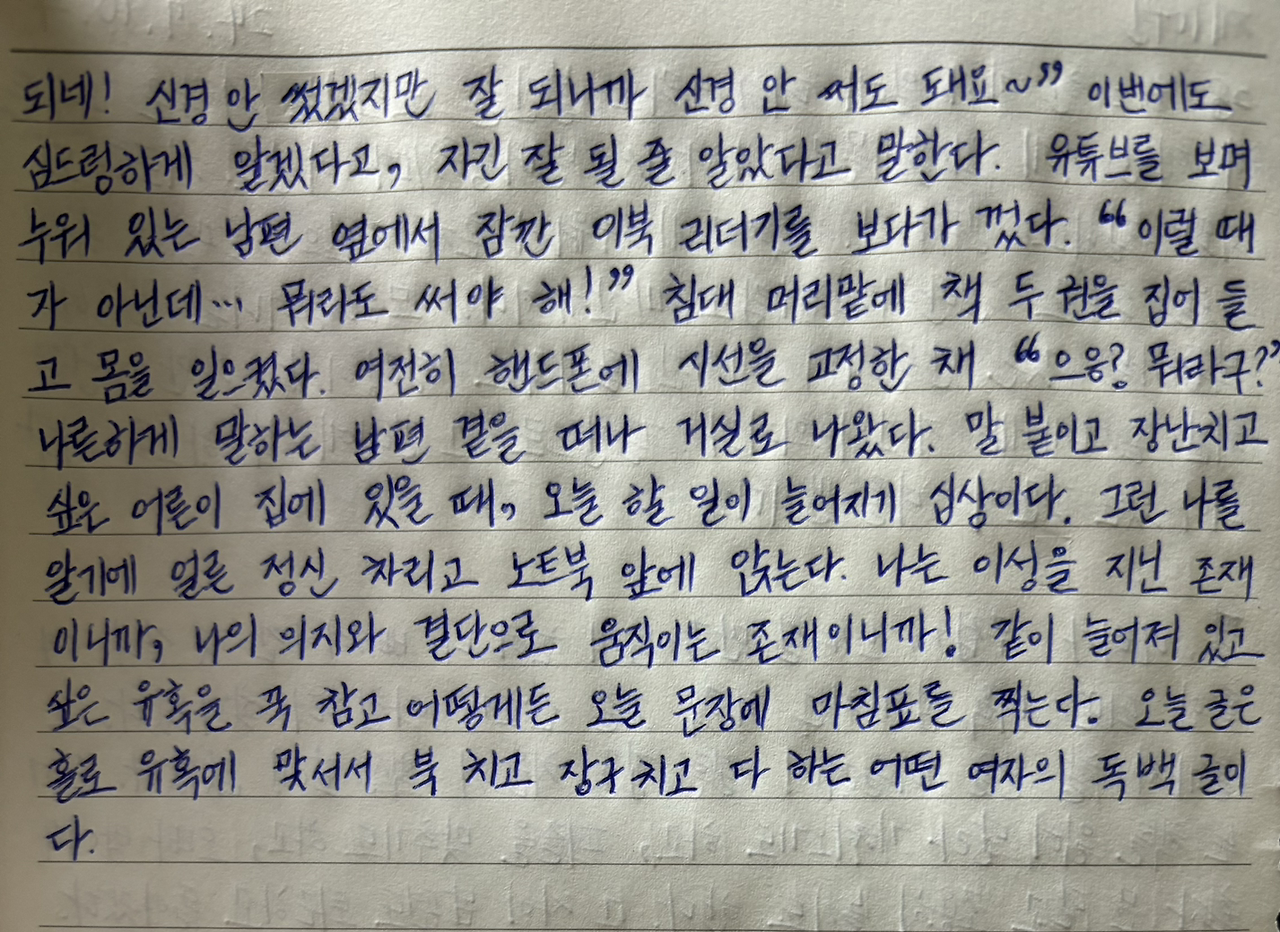 되네! 신경 안 썼겠지만 잘 되니까 신경 안 써도 돼요~” 이번에도
심드렁하게 알겠다고, 자긴 잘 될 줄 알았다고 말한다. 유튜브를 보며
누워 있는 남편 옆에서 잠깐 이북 리더기를 보다가 껐다. “이럴 때
가 아닌데… 뭐라도 써야 해!” 침대 머리맡에 책 두 권을 집어 들
고 몸을 일으켰다. 여전히 핸드폰에 시선을 고정한 채 “으응? 뭐라구?”
나른하게 말하는 남편 곁을 떠나 거실로 나왔다. 말 붙이고 장난치고
싶은 어른이 집에 있을 때, 오늘 할 일이 늘어지기 십상이다. 그런 나를
알기에 얼른 정신 차리고 노트북 앞에 앉는다. 나는 이성을 지닌 존재
이니까, 나의 의지와 결단으로 움직이는 존재이니까! 같이 늘어져 있고
싶은 유혹을 꾹 참고 어떻게든 오늘 문장에 마침표를 찍는다. 오늘 글은
홀로 유혹에 맞서서 북 치고 장구 치고 다 하는 어떤 여자의 독백 글이
다.